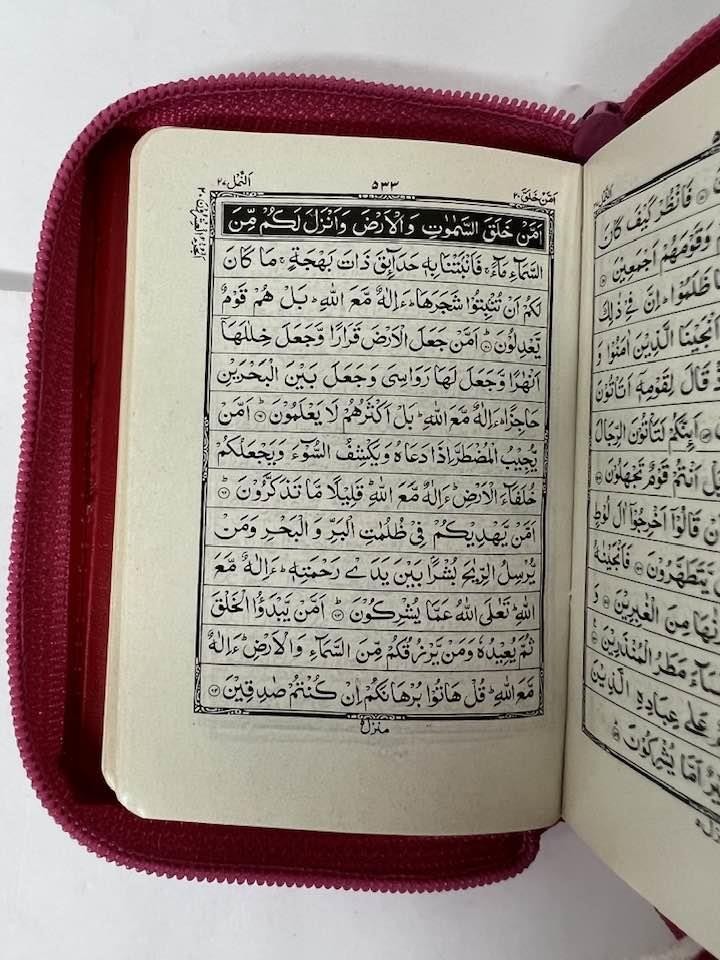 امن خلق ٢٠
٥٣٣
النمل ٢٧
اَمَّنْ خَلَقَ السَّمٰوٰتِ وَ الْاَرْضَ وَ اَنْزَلَ لَكُمْ مِّنَ
السَّمَآءِ مَآءً ۚ فَاَنْۢبَتْنَا بِهٖ حَدَآئِقَ ذَاتَ بَهْجَةٍ ۚ مَا كَانَ
لَكُمْ اَنْ تُنْۢبِتُوْا شَجَرَهَا ؕ ءَاِلٰهٌ مَّعَ اللّٰهِ ؕ بَلْ هُمْ قَوْمٌ
يَّعْدِلُوْنَ ﴿۶۰﴾ اَمَّنْ جَعَلَ الْاَرْضَ قَرَارًا وَّ جَعَلَ خِلٰلَهَاۤ
اَنْهٰرًا وَّ جَعَلَ لَهَا رَوَاسِیَ وَ جَعَلَ بَيْنَ الْبَحْرَيْنِ
حَاجِزًا ؕ ءَاِلٰهٌ مَّعَ اللّٰهِ ؕ بَلْ اَكْثَرُهُمْ لَا يَعْلَمُوْنَ ﴿۶۱﴾ اَمَّنْ
يُّجِيْبُ الْمُضْطَرَّ اِذَا دَعَاهُ وَ يَكْشِفُ السُّوْٓءَ وَ يَجْعَلُكُمْ
خُلَفَآءَ الْاَرْضِ ؕ ءَاِلٰهٌ مَّعَ اللّٰهِ ؕ قَلِيْلًا مَّا تَذَكَّرُوْنَ ﴿۶۲﴾
اَمَّنْ يَّهْدِيْكُمْ فِیْ ظُلُمٰتِ الْبَرِّ وَ الْبَحْرِ وَ مَنْ
يُّرْسِلُ الرِّيٰحَ بُشْرًۢا بَيْنَ يَدَیْ رَحْمَتِهٖ ؕ ءَاِلٰهٌ مَّعَ
اللّٰهِ ؕ تَعٰلَی اللّٰهُ عَمَّا يُشْرِكُوْنَ ﴿۶۳﴾ اَمَّنْ يَّبْدَؤُا الْخَلْقَ
ثُمَّ يُعِيْدُهٗ وَ مَنْ يَّرْزُقُكُمْ مِّنَ السَّمَآءِ وَ الْاَرْضِ ؕ ءَاِلٰهٌ
مَّعَ اللّٰهِ ؕ قُلْ هَاتُوْا بُرْهَانَكُمْ اِنْ كُنْتُمْ صٰدِقِيْنَ ﴿۶۴﴾
منزل ٥
فَانْظُرْ كَيْفَ كَانَ
وَقَوْمَهُمْ اَجْمَعِيْنَ
ظَلَمُوْا ؕ اِنَّ فِیْ ذٰلِكَ
اَنْجَيْنَا الَّذِيْنَ اٰمَنُوْا وَ
قَالَ لِقَوْمِهٖۤ اَتَاْتُوْنَ
اَئِنَّكُمْ لَتَاْتُوْنَ الرِّجَالَ
اَنْتُمْ قَوْمٌ تَجْهَلُوْنَ
قَالُوْۤا اَخْرِجُوْۤا اٰلَ لُوْطٍ
يَّتَطَهَّرُوْنَ فَاَنْجَيْنٰهُ
مِنَ الْغٰبِرِيْنَ وَ
مَطَرُ الْمُنْذَرِيْنَ
عَلٰی عِبَادِهِ الَّذِيْنَ
اَمَّا يُشْرِكُوْنَ